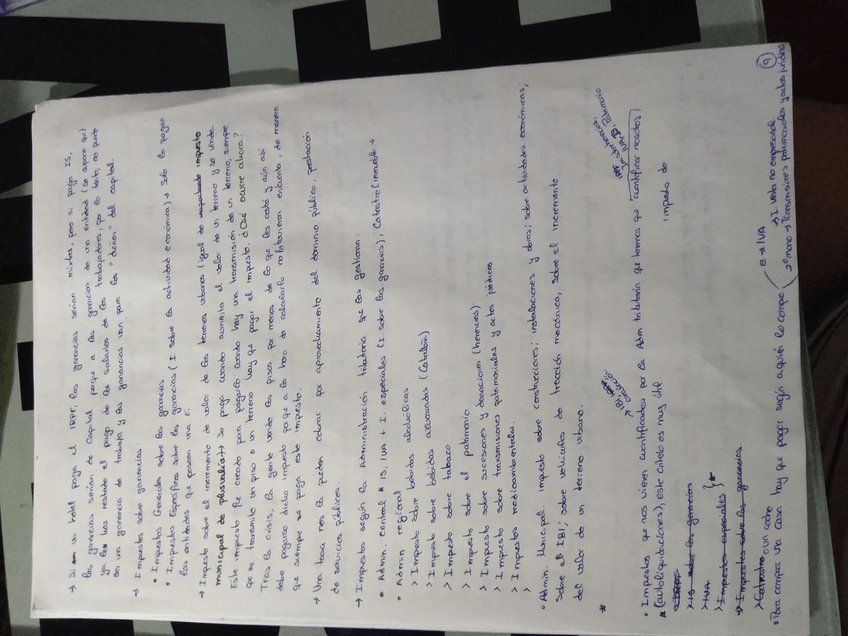 → Si un hotel paga el IRPF, las ganancias serían mixtas, pero si paga IS,
las ganancias serían de Capital porque a las ganancias de una entidad (se supone que)
ya se las restado el pago de los salarios de los trabajadores, por lo tanto, no puede
ser una ganancia de trabajo y las ganancias van para los "dueños" del capital.
→ Impuestos sobre ganancias:
• Impuestos Generales sobre las ganancias
• Impuestos Específicos sobre las ganancias (I sobre la actividad económica) → Solo lo pagan
las entidades que poseen una €.
→ Impuesto sobre el incremento de valor de los terrenos urbanos (igual de impuesto
municipal de plusvalía) → Se paga cuando aumenta el valor de un terreno y se vende.
Este impuesto fue creado para pagarlo cuando hay una transmisión de un terreno, siempre
que se transmita un piso o un terreno hay que pagar el impuesto. ¿Qué ocurre ahora?
Tras la crisis, la gente vende los pisos por menos de lo que les costó y aún así
debe pagarse dicho impuesto porque a la hora de calcularlo, de manera
que siempre se paga este impuesto.
→ Una tasa nos la pueden cobrar por aprovechamiento del dominio público, prestación
de servicios públicos.
→ Impuestos según la Administración tributaria que los gestionan.
• Admin. central * IS, IVA + I. especiales (I. sobre las ganancias), Catastro (inmueb. →
• Admin regional
> Impuesto sobre bebidas alcohólicas
> Impuesto sobre bebidas azucaradas (Cataluña)
> Impuesto sobre tabaco
> Impuesto sobre el patrimonio
> Impuesto sobre sucesiones y donaciones (herencias)
> Impuesto sobre transmisiones patrimoniales y actos jurídicos
> Impuestos medioambientales.
>
• Admin. Municipal impuesto sobre construcciones, instalaciones y obras; sobre actividades económicas;
sobre el IBI; sobre vehículos de tracción mecánica, sobre el incremento
del valor de un terreno urbano.
*
• Impuestos que nos vienen cuantificados por la Adm tributaria que tenemos que cuantificar nosotros /
* (autoliquidaciones), este último es muy útil
impuesto de
> IRPF
> IS sobre las ganancias
> IVA
> Impuestos especiales } *
→ Impuestos sobre las ganancias
> Catastro
• Para comprar una casa hay que pagar según a quién lo compre
→ IVA
→ I venta no empresarial
2ª mano → Transmisiones patrimoniales y actos jurídicos
9